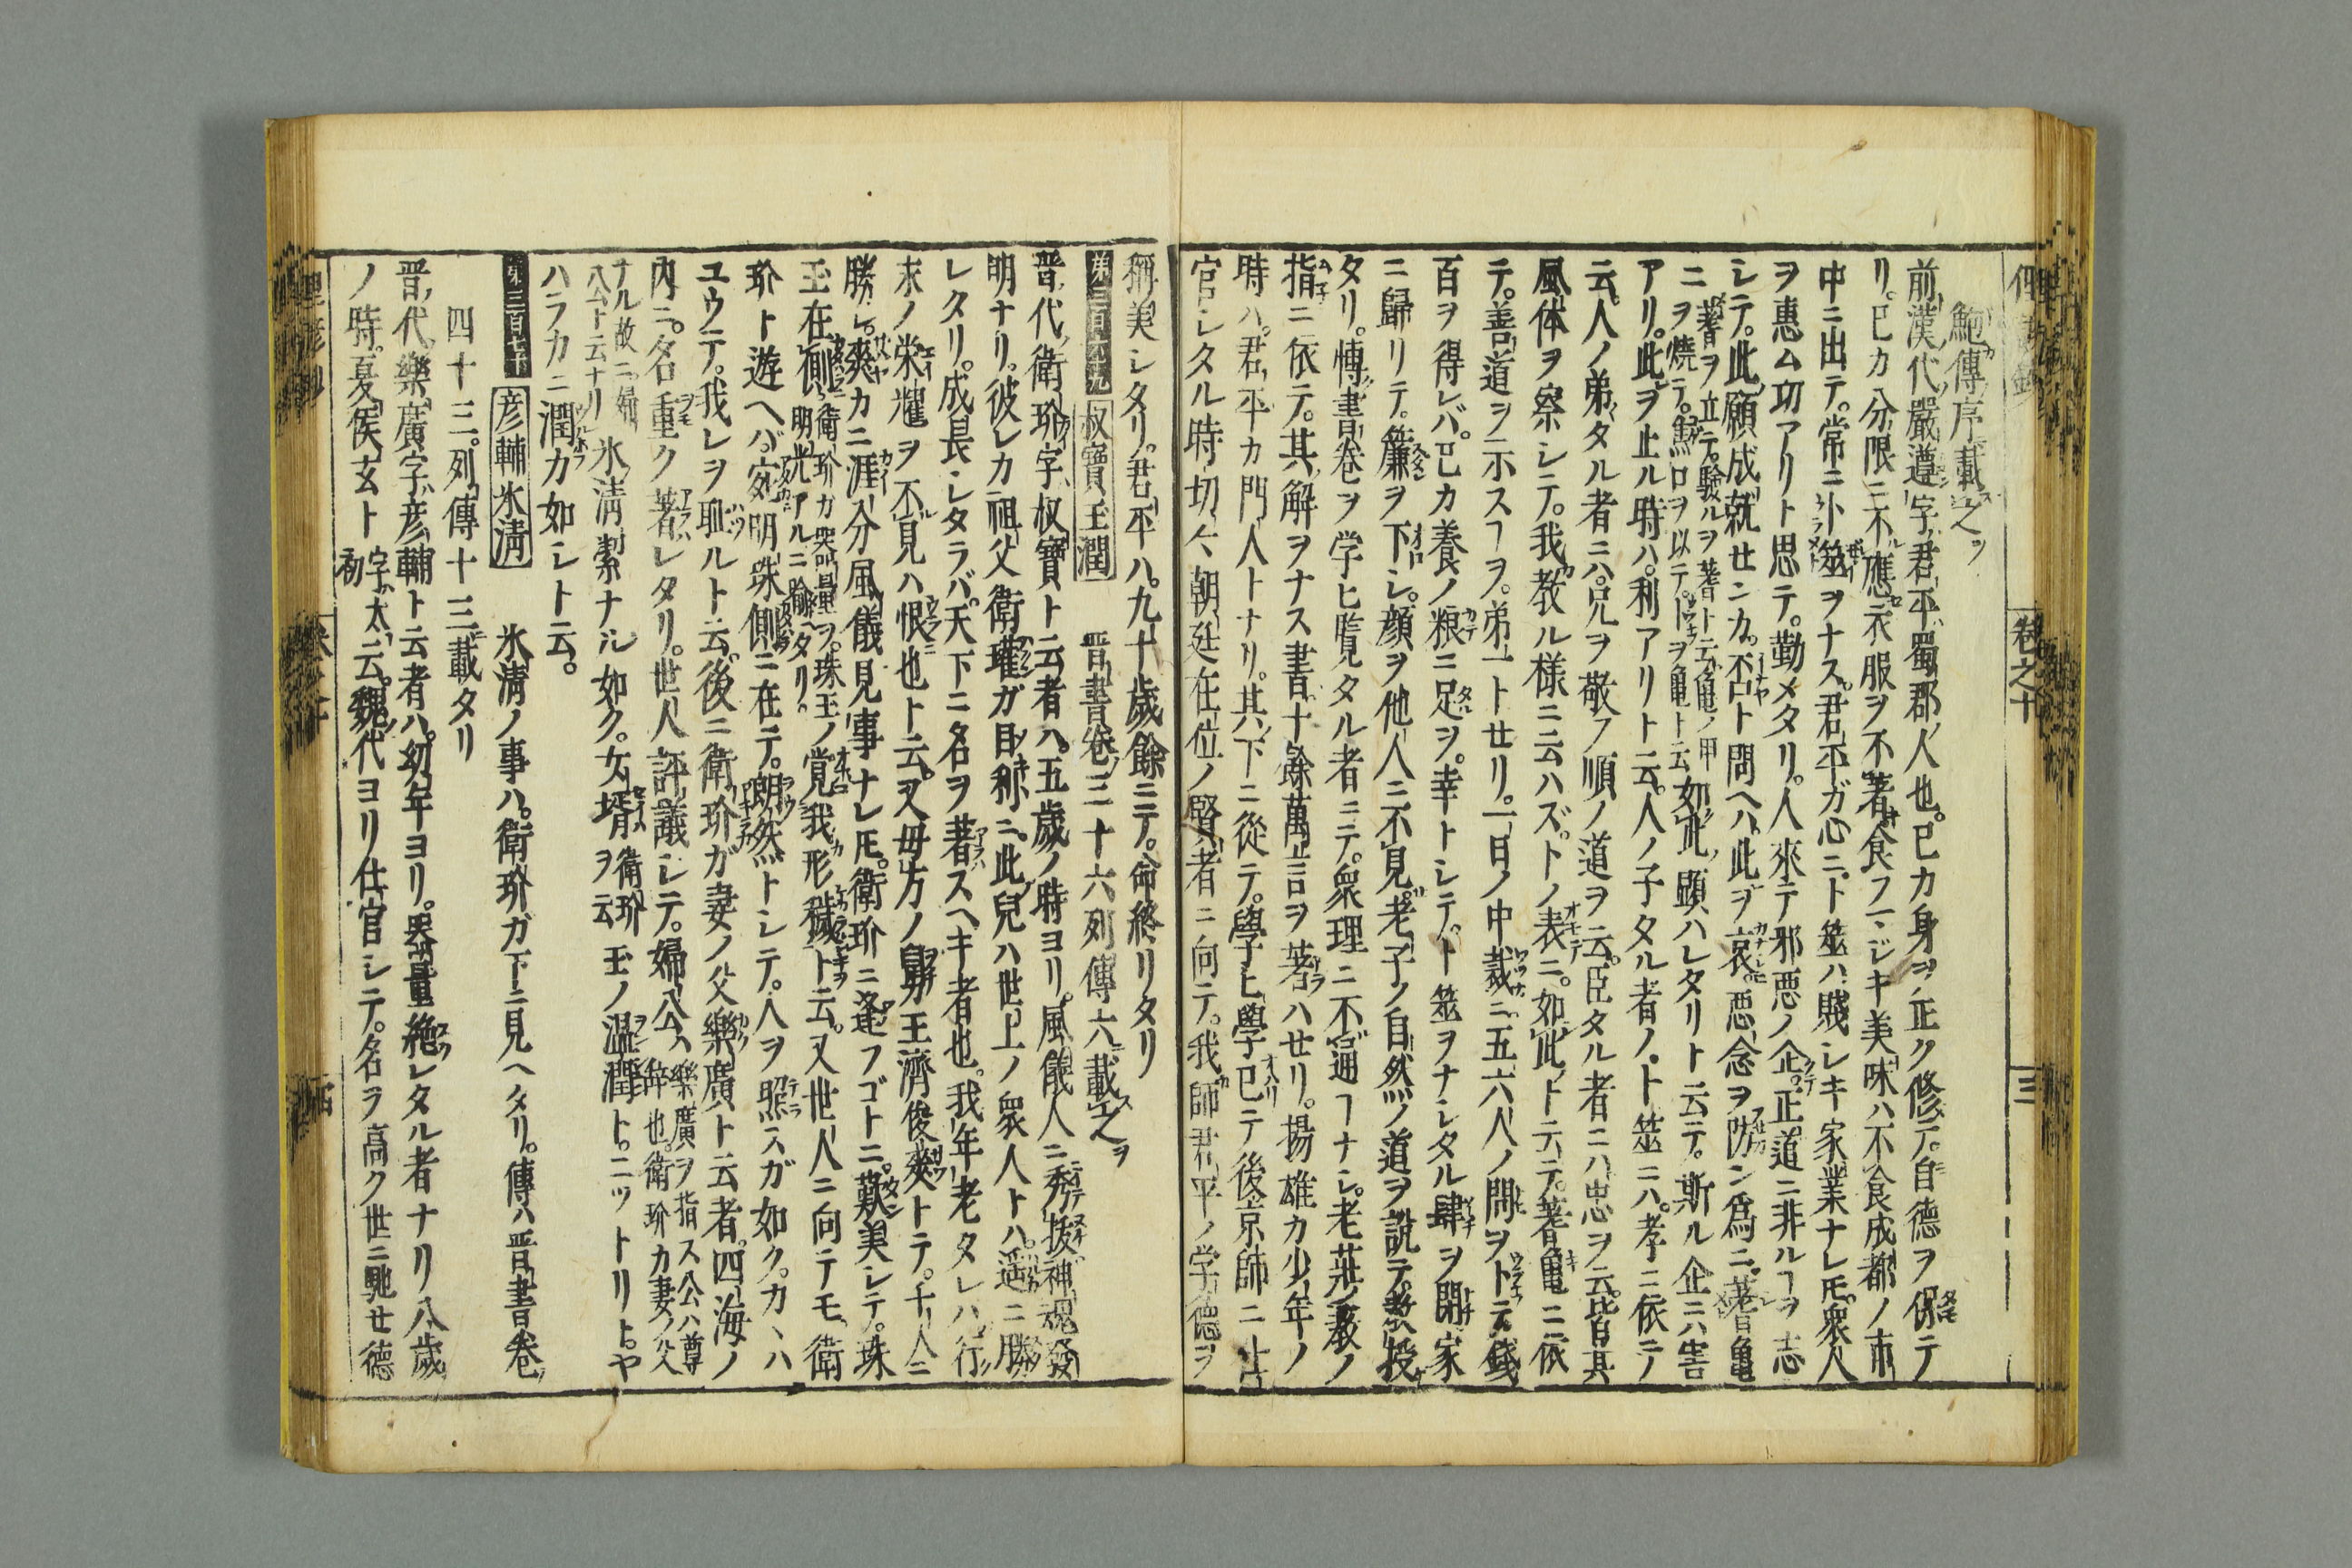 卷之十
三
鮑傳序載之ヲ
前漢代嚴遵字君平蜀郡人也。已カ身ヲ正ク修テ。自德ヲ保テ
リ。已カ分限ニ不應衣服ヲ不著食フマジキ美味ハ不食成都ノ市
中ニ出テ。常ニ卜筮ヲナス。君平ガ心ニ。卜筮ハ賤シキ家業ナレ𪜈。衆人
ヲ惠ム功アリト思テ。勤メタリ。人來テ邪惡ノ企。正道ニ非ルヿヲ志
シテ。此願成就センカ。否ト問ヘハ。此ヲ哀。惡念ヲ防ン為ニ。蓍龜
ニ
蓍ヲ立テ。驗ルヲ蓍ト云。龜ノ甲
ヲ燒テ。以テヲ龜ト云
如此顕ハレタリト云テ。斯ル企ニハ害
アリ。此ヲ止ル時ハ。利アリト云。人ノ子タル者ノ卜筮ニハ。孝ニ依テ
云。人ノ弟タル者ニハ。兄ヲ敬フ順ノ道ヲ云。臣タル者ニハ忠ヲ云。皆其
風体ヲ察シテ。我教ル様ニ云ハズ。卜ノ表ニ。如此ト云テ。蓍龜ニ依
テ。善道ヲ示スヿヲ。第一トセリ。一日ノ中裁ニ五六人ノ問ヲ卜テ錢
百ヲ得レバ。已カ養ノ粮ニ足ヲ。幸トシテ。卜筮ヲナシタル肆ヲ閉家
ニ歸リテ。簾ヲ下シ。顔ヲ他人ニ不見。老子ノ自然ノ道ヲ説テ。教授
タリ。博書卷ヲ学ヒ覧タル者ニテ。衆理ニ不通ヿナシ。老莊教ノ
指ニ依テ。其解ヲナス書十餘萬言ヲ著ハセリ。揚雄カ少年ノ
時ハ。君平カ門人トナリ。其下ニ從テ。學ヒ學已テ後京師ニ上
官シタル時切々朝廷在位ノ賢者ニ向テ。我師君平ノ学德ヲ
稱美シタリ。君平ハ。九十歳餘ニテ。命終リタリ
第三百六十九 叔寶玉潤 晋書卷三十六列傳六載之ヲ
晋代衛玠字叔寶ト云者ハ。五歳ノ時ヨリ。風儀人ニ秀抜神魂發
明ナリ。彼レカ祖父衛瓘ガ目稱ニ。此兒ハ世上ノ衆人トハ。遥ニ勝
レタリ。成長シタラバ。天下ニ名ヲ著スヘキ者也。我年老タレハ。行
末ノ栄耀ヲ不見ハ恨也ト云。又母方ノ舅王濟俊爽トテ。千人ニ
勝レ。爽カニ涯分風儀見事ナレ𪜈。衛玠ニ逢フゴトニ。歎美シテ。珠
玉在側
衛玠ガ器量ヲ。珠玉ノ
明光アルニ喩ヘタリ。
覚我形穢ト云。又世人ニ向テモ。衛
玠ト遊ヘバ。宛明珠側ニ在テ。朗然トシテ。人ヲ照スガ如ク。カヽハ
ユウテ。我レヲ耻ルト云。後ニ衛玠ガ妻ノ父樂廣ト云者。四海ノ
内ニ。名重ク著レタリ。世人評議シテ。婦公ハ
樂廣ヲ指ス公ハ尊
辞也。衛玠カ妻ノ父
ナル故ニ婦
公ト云ナリ
氷清潔ナル如ク。女壻
衛玠
ヲ云
玉ノ温潤ト。ニットリト。ヤ
ハラカニ潤カ如シト云。
第三百七十 彦輔氷清 氷清ノ事ハ。衛玠ガ下ニ見ヘタリ。傳ハ晋書卷
四十三。列傳十三載タリ
晋代樂廣字彦輔ト云者ハ。幼年ヨリ。器量絶レタル者ナリ八歳
ノ時。夏侯玄ト
字太
初
云。魏代ヨリ仕官シテ。名ヲ高ク世ニ馳セ德